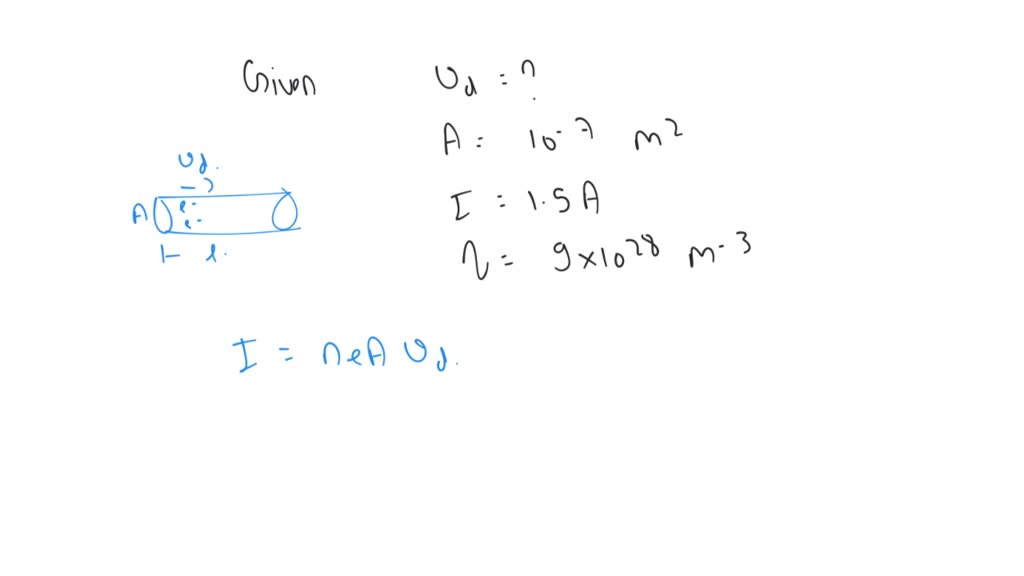 Given
υd = ?
A = 10-7 m2
I = 1.5A
η = 9x10 28 m-3
υd.
→
A e-
e-
⊢ l.
I = neA υd.